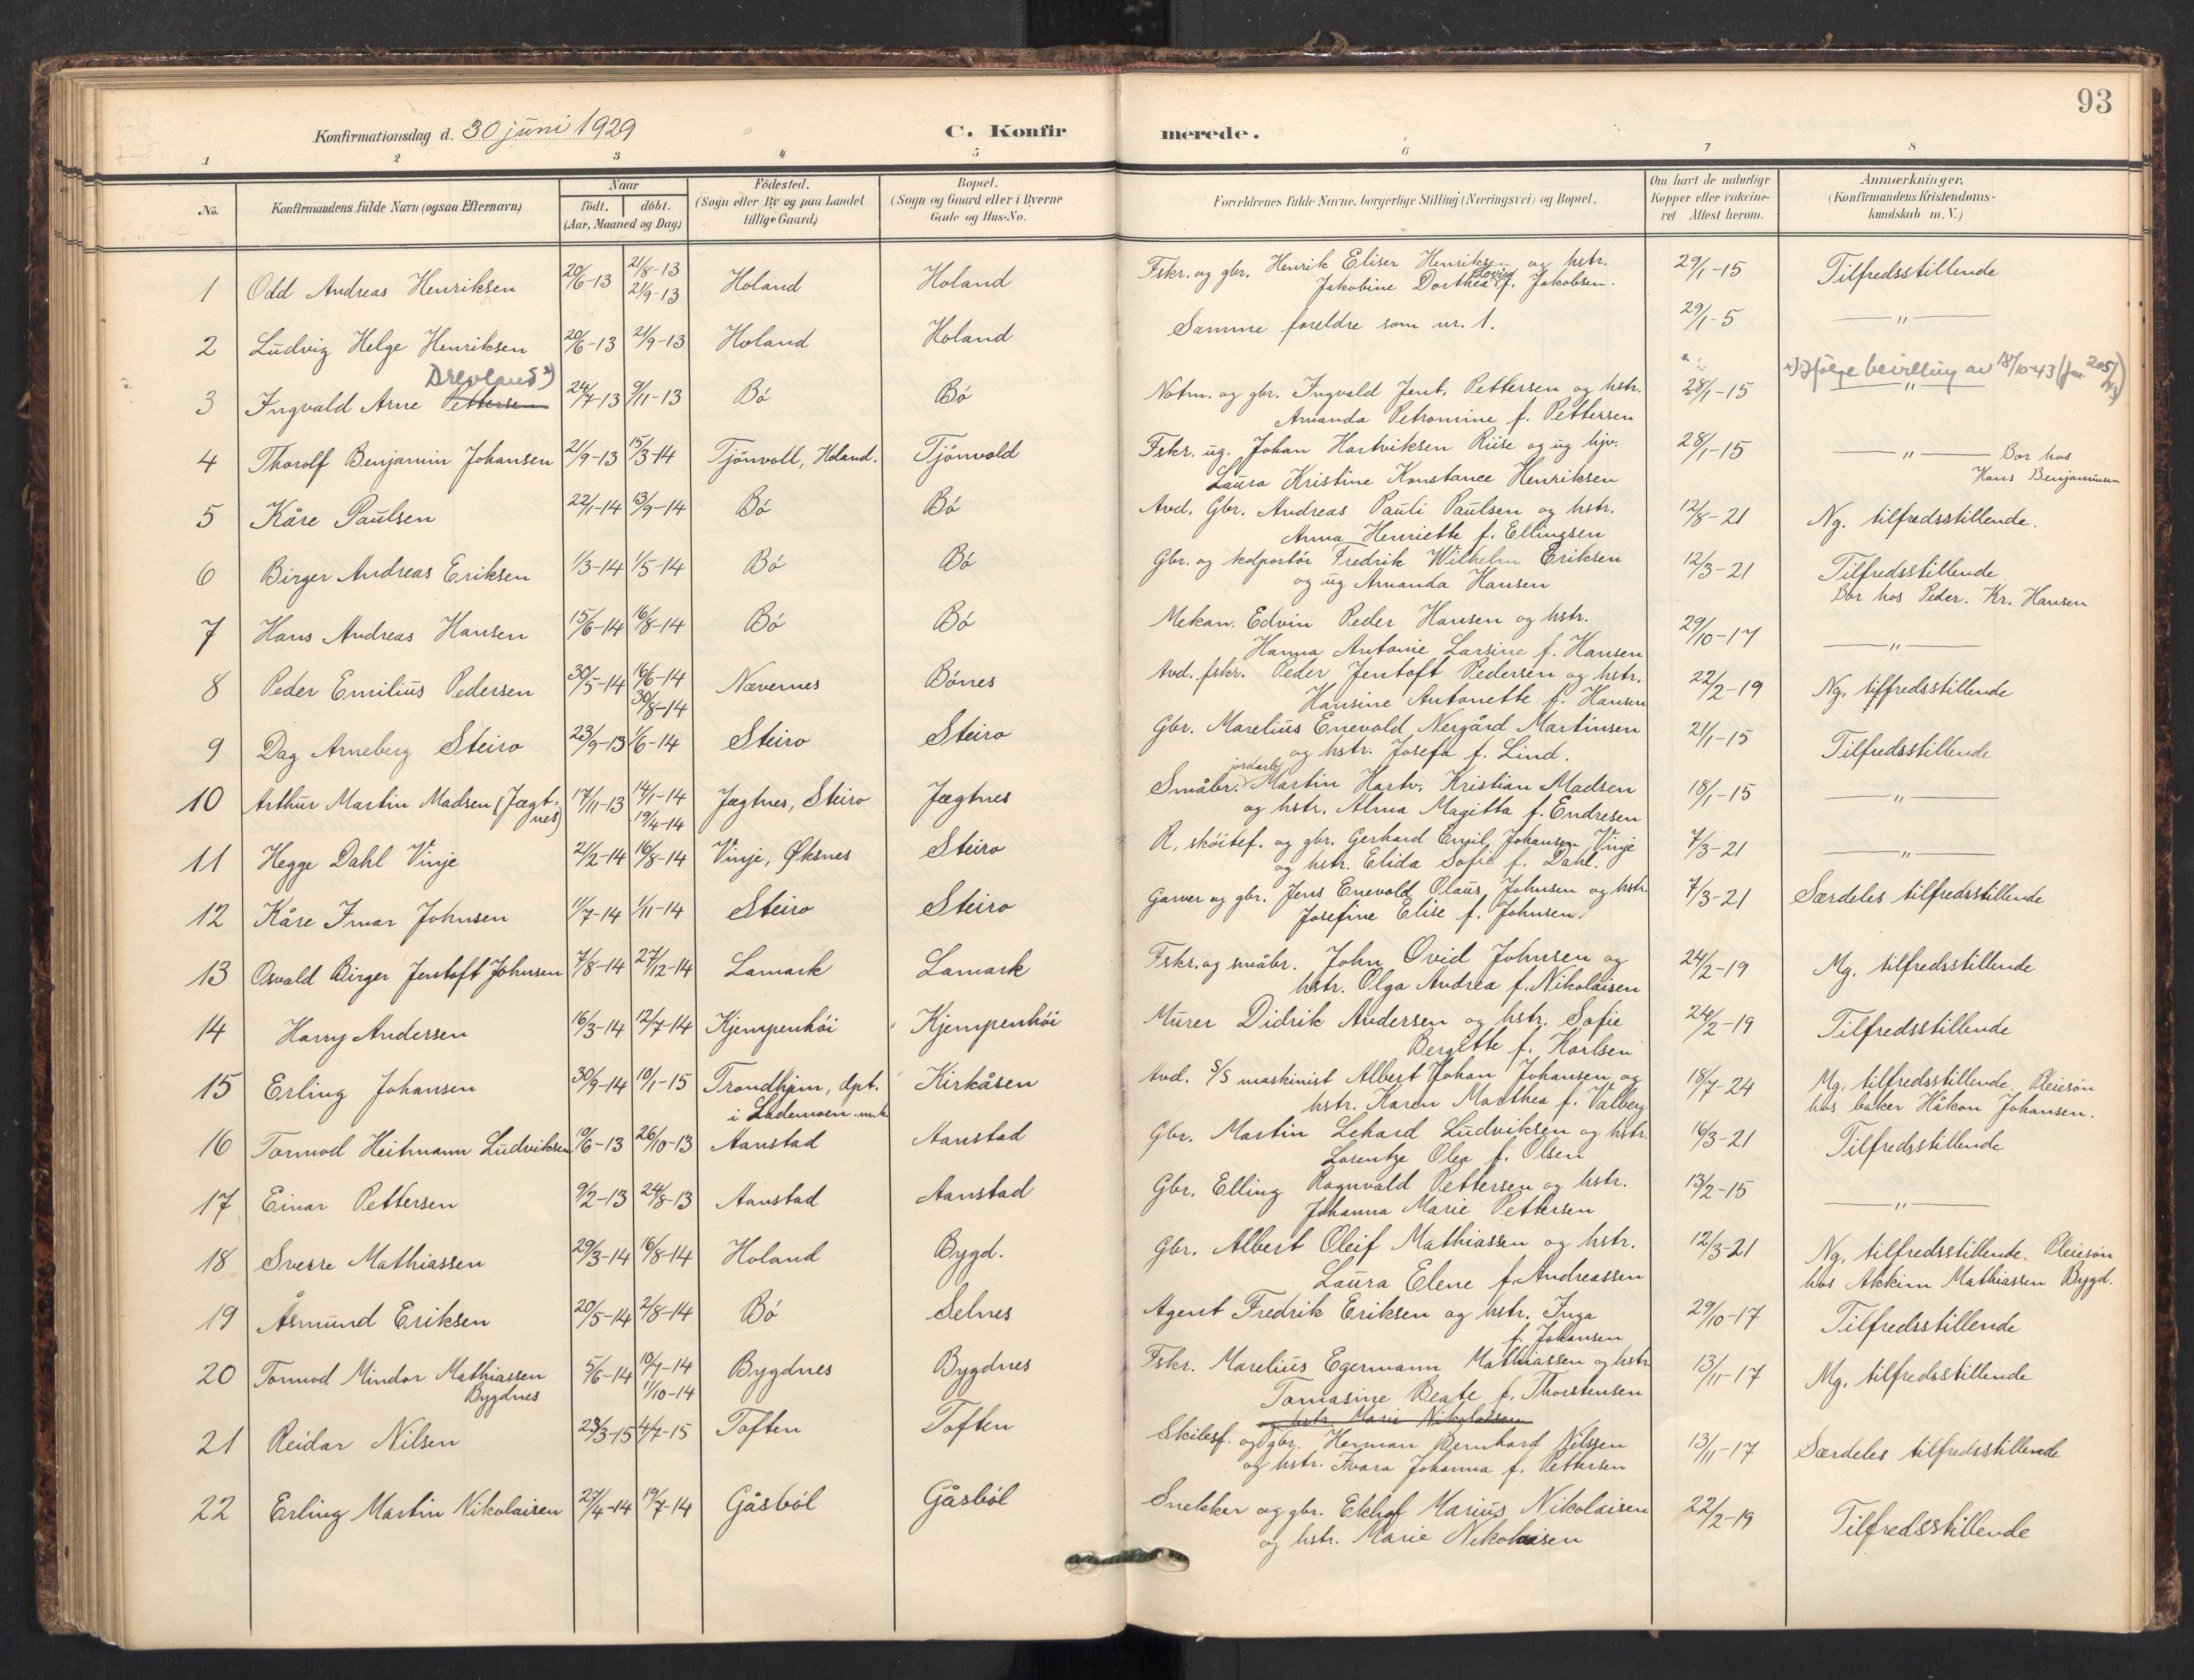 93
Konfirmationsdag d. 30 juni 1929
C. Konfirmerede.
1 2 3 4 5 6 7 8
No.
Konfirmandens fulde Navn (ogsaa Efternavn)
Naar
födt. döbt.
(Aar, Maaned og Dag)
Födested.
(Sogn eller By og paa Landet
tillige Gaard)
Bopæl.
(Sogn og Gaard eller i Byerne
Gade og Hus-No.
Forældrenes fulde Navne, borgerlige Stilling (Næringsvei) og Bopæl.
Om havt de naturlige
Kopper eller vakcine-
ret Attest herom.
Anmærkninger.
(Konfirmandens Kristendoms-
kundskab m. V.)
1 Odd Andreas Henriksen 20/6-13 21/8-13 Holand Holand Fskr. og gbr. Henrik Eliser Henriksen og hstr. 29/1-15 Tilfredsstillende
21/9-13 Jakobine Dorthea Lovise f. Jakobsen.
2 Ludvig Helge Henriksen 20/6-13 21/9-13 Holand Holand Samme foreldre som nr. 1. 29/1-5 — " —
Drevland x)
x) Ifølge bevilling av 18/10-43
3 Ingvald Arne Pettersen 24/7-13 9/11-13 Bö Bö Notm. og gbr. Ingvald Jent. Pettersen og hstr. 28/1-15 — " —
Amanda Petromine f. Pettersen
4 Thorolf Benjamin Johansen 21/9-13 15/3-14 Tjönvoll, Holand. Tjönvold Fskr. ug. Johan Hartviksen Riise og ug hjv. 28/1-15 — " — Bor hos
Laura Kristine Konstance Henriksen Hans Benjaminsen
5 Kåre Paulsen 22/1-14 13/9-14 Bö Bö Avd. Gbr. Andreas Pauli Paulsen og hstr. 12/8-21 Ng. tilfredsstillende.
Anna Henriette f. Ellingsen
6 Birger Andreas Eriksen 1/3-14 1/5-14 Bö Bö Gbr. og kolportör Fredrik Wilhelm Eriksen 12/3-21 Tilfredsstillende
og ug Amanda Hansen Bor hos Peder. Kr. Hansen
7 Hans Andreas Hansen 15/6-14 16/8-14 Bö Bö Mekan. Edvin Peder Hansen og hstr. 29/10-17 — " —
Hanna Antonie Larsine f. Hansen
8 Peder Emilius Pedersen 30/5-14 16/6-14 Nævernes Bönes Avd. fskr. Peder Jentoft Pedersen og hstr. 22/2-19 Ng. tilfredsstillende
30/8-14 Hansine Antonette f. Hansen
9 Dag Arneberg Steiro 23/9-13 1/6-14 Steiro Steiro Gbr. Marelius Enevold Nergård Martinsen 21/1-15 Tilfredsstillende
og hstr. Josefa f. Lind.
jordarb.
10 Arthur Martin Madsen (Jægt- 17/11-13 14/1-14 Jægtnes, Steiro Jægtnes Småbr. Martin Hartv. Kristian Madsen 18/1-15 — " —
nes) 19/4-14 og hstr. Alma Magitta f. Endresen
11 Hegge Dahl Vinje 2/2-14 16/8-14 Vinje, Øksnes Steiro R. sköitef. og gbr. Gerhard Emil Johansen Vinje 7/3-21 — " —
og hstr. Elida Sofie f. Dahl.
12 Kåre Imar Johnsen 11/7-14 1/11-14 Steiro Steiro Garver og gbr. Jens Enevold Olaus Johnsen og hstr. 7/3-21 Særdeles tilfredsstillende
Josefine Elise f. Johnsen.
13 Osvald Birger Jentoft Johnsen 7/8-14 27/12-14 Lamark Lamark Fskr. og småbr. John Ovid Johnsen og 24/2-19 Mg. tilfredsstillende
hstr. Olga Andrea f. Nikolaisen
14 Harry Andersen 16/3-14 12/7-14 Kjempenhöi Kjempenhöi Murer Didrik Andersen og hstr. Sofie 24/2-19 Tilfredsstillende
Bergitte f. Karlsen
15 Erling Johansen 30/9-14 10/1-15 Trondhjem, dpt. Kirkåsen Avd. S/S maskinist Albert Johan Johansen og 18/7-24 Mg. tilfredsstillende. Pleiesøn
i Lademoen m.k. hstr. Karen Marthea f. Valberg hos baker Håkon Johansen.
16 Tormod Heitmann Ludviksen 10/6-13 26/10-13 Aanstad Aanstad Gbr. Martin Lehard Ludviksen og hstr. 16/3-21 Tilfredsstillende
Lorentze Olea f. Olsen
17 Einar Pettersen 9/2-13 24/8-13 Aanstad Aanstad Gbr. Elling Ragnvald Pettersen og hstr. 13/2-15 — " —
Johanna Marie Pettersen
18 Sverre Mathiassen 29/3-14 16/8-14 Holand Bygd. Gbr. Albert Oleif Mathiassen og hstr. 12/3-21 Ng. tilfredsstillende. Pleiesøn
Laura Elene f. Andreassen hos Akkim Mathiassen Bygd.
19 Åsmund Eriksen 20/5-14 2/8-14 Bö Selnes Agent Fredrik Eriksen og hstr. Inga 29/10-17 Tilfredsstillende
f. Johansen
20 Tormod Mindor Mathiassen 5/6-14 10/7-14 Bygdnes Bygdnes Fskr. Marelius Egermann Mathiassen og hstr. 13/11-17 Mg. tilfredsstillende
Bygdnes 11/10-14 Tomasine Beate f. Thorstensen
og hstr. Marie Nikolaisen
21 Reidar Nilsen 23/3-15 4/7-15 Toften Toften Skibsf. og gbr. Herman Bernhard Nilssen 13/11-17 Særdeles tilfredsstillende
og hstr. Ivara Johanna f. Pettersen
22 Erling Martin Nikolaisen 27/4-14 19/7-14 Gåsböl Gåsböl Snekker og gbr. Ekhof Marius Nikolaisen 22/2-19 Tilfredsstillende
og hstr. Marie Nikolaisen